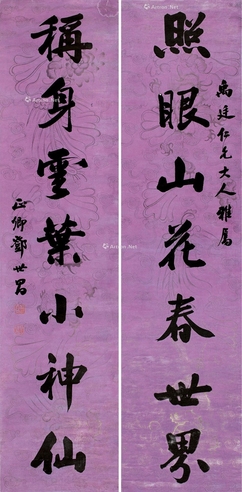 禹廷仁兄大人雅屬
照眼山花春世界
稱身雲葉小神仙
正卿鄧世昌